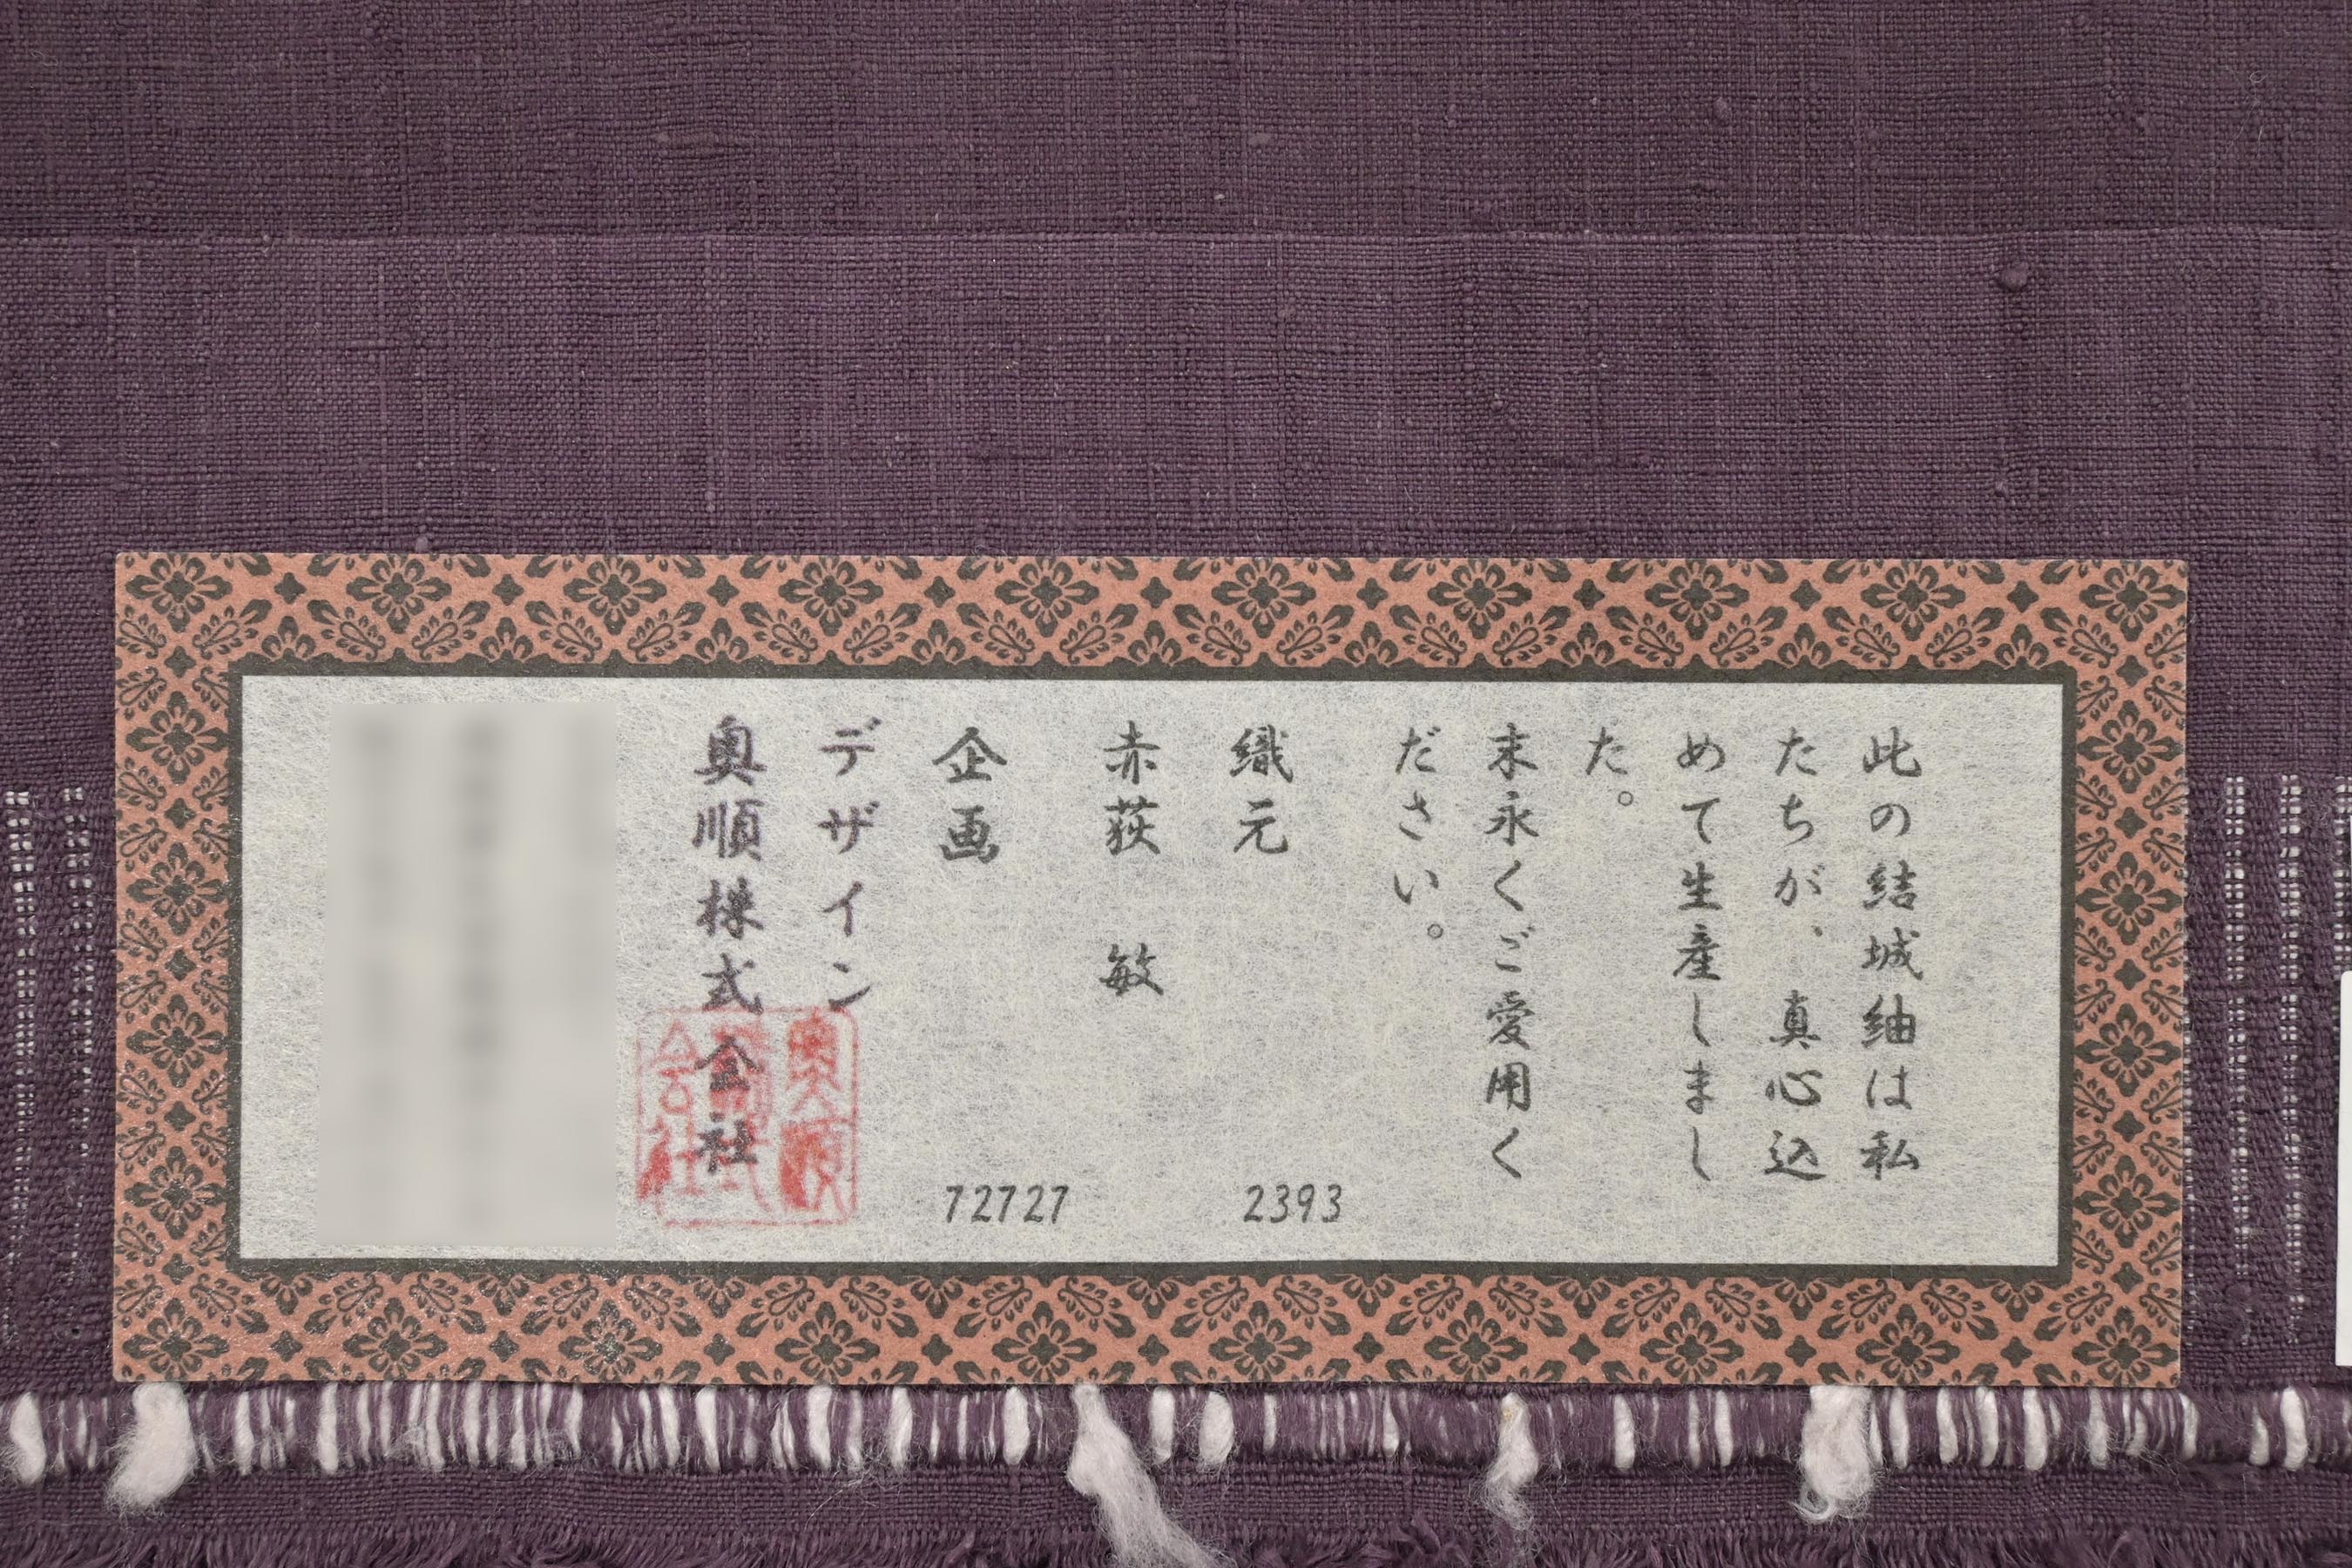 此の結城紬は私
たちが、真心込
めて生産しまし
た。
末永くご愛用く
ださい。
織元
2393
赤荻 敏
企画
72727
デザイン
奥順株式会社
奥順
株式
会社